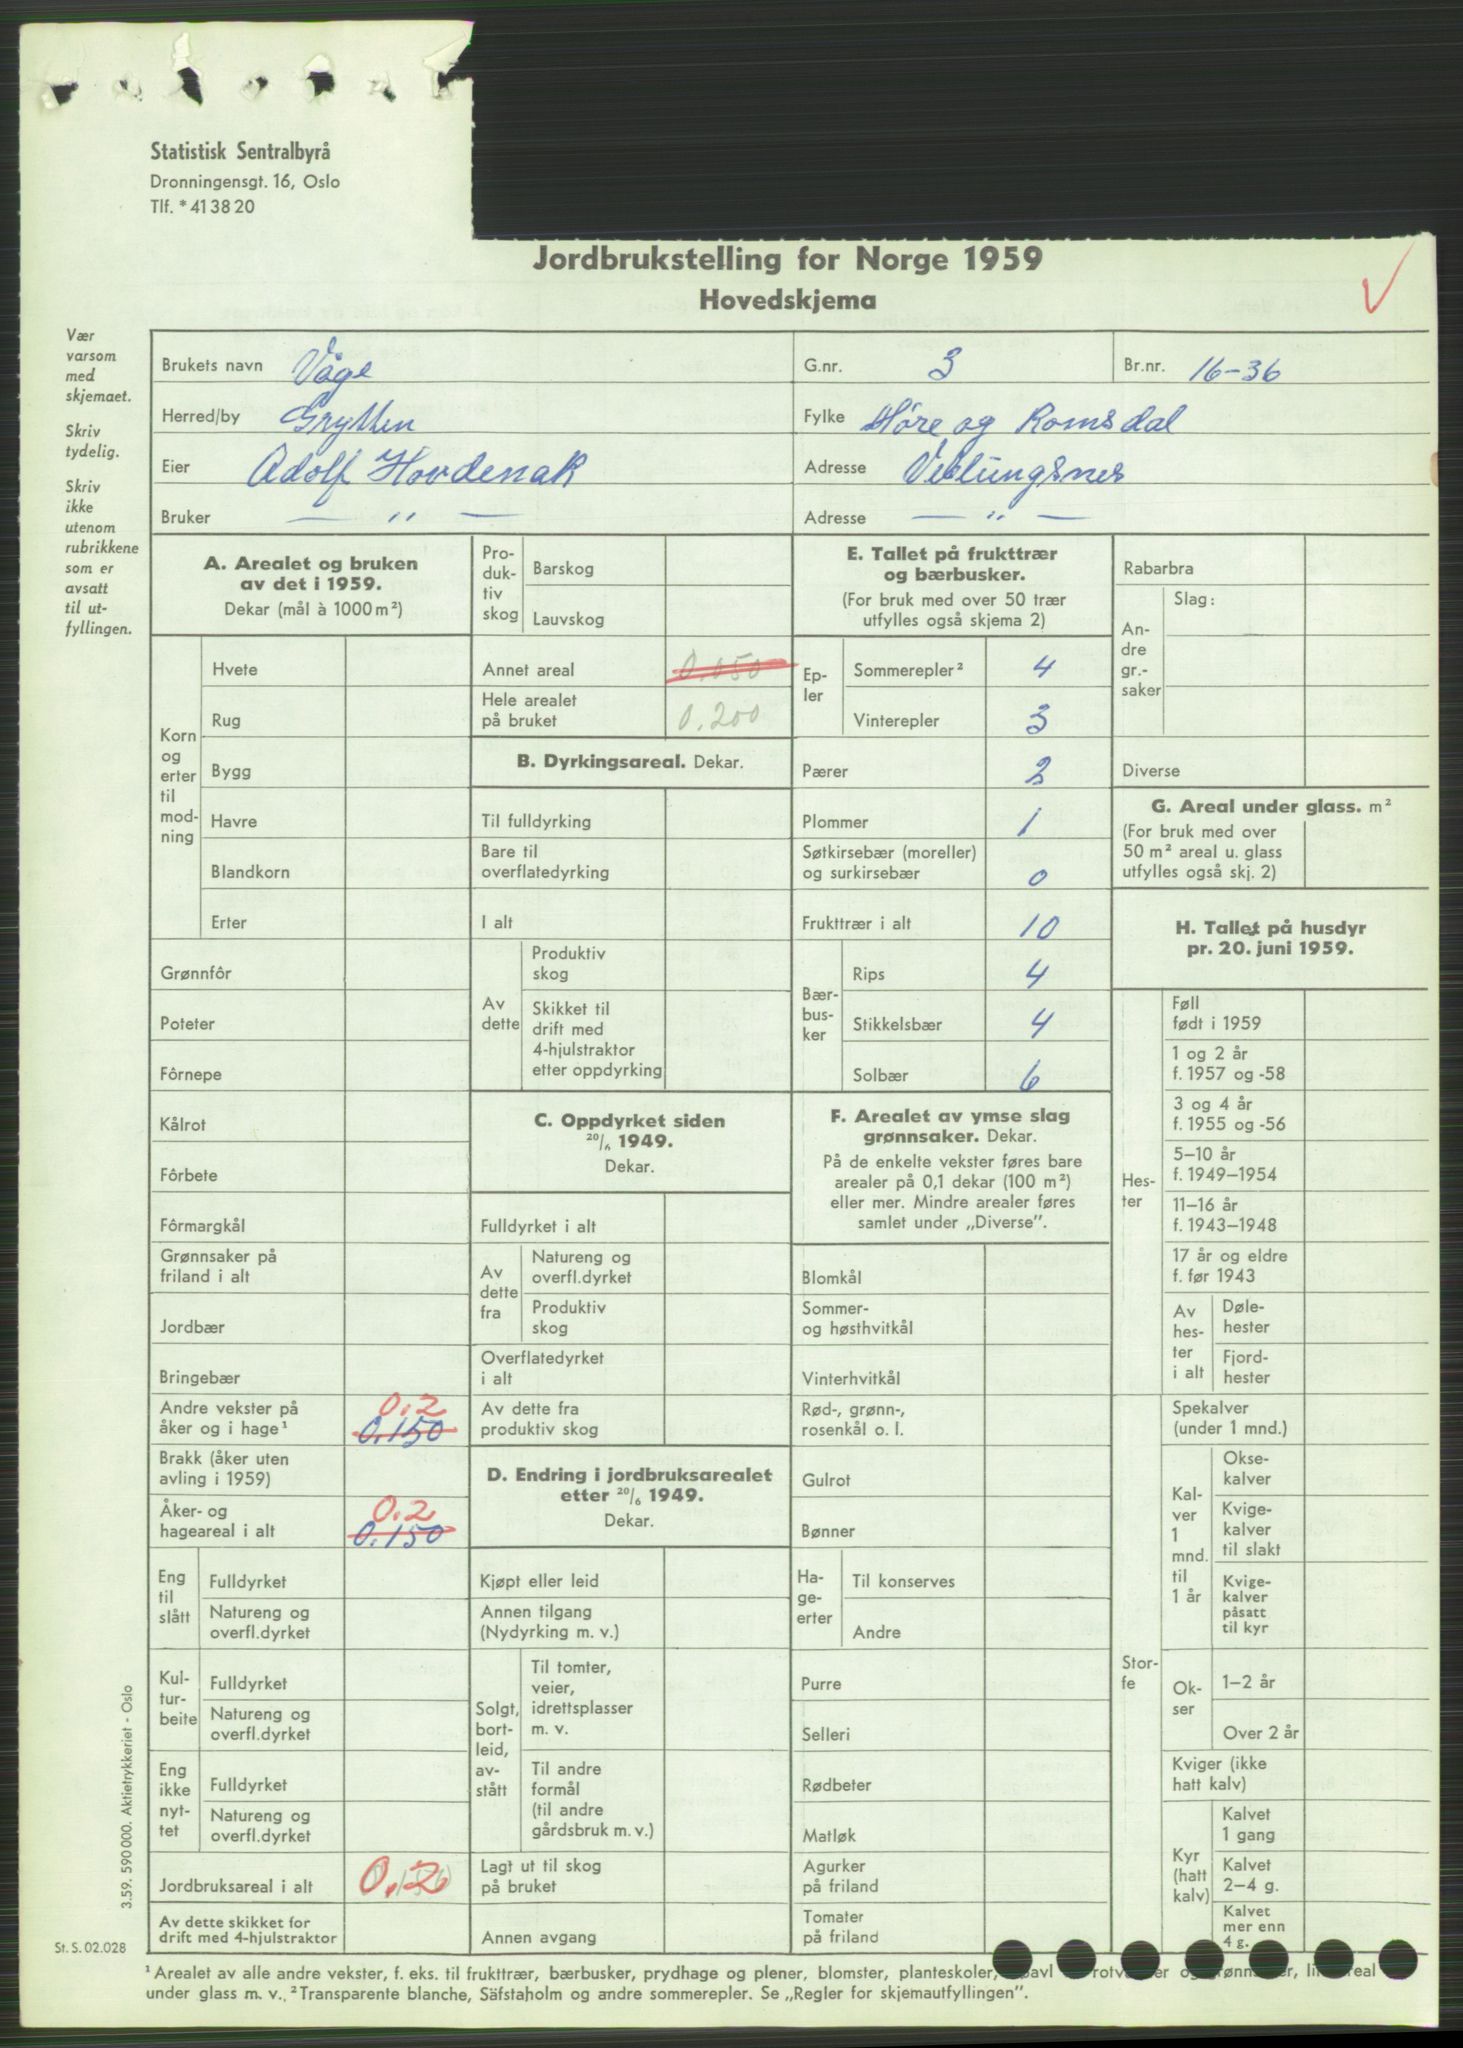 Statistisk Sentralbyrå
Dronningensgt. 16, Oslo
Tlf. * 41 38 20
Jordbrukstelling for Norge 1959
Hovedskjema
Vær
varsom
med
skjemaet.
Skriv
tydelig.
Skriv
ikke
utenom
rubrikkene
som er
avsatt
til ut-
fyllingen.
Brukets navn Våge
G.nr. 3
Br.nr. 16-36
Herred/by Grytten
Fylke Møre og Romsdal
Eier Adolf Hovdenak
Adresse Veblungsnes
Bruker — " —
Adresse — " —
A. Arealet og bruken
av det i 1959.
Dekar (mål à 1000 m²)
Korn
og
erter
til
mod-
ning
Hvete
Rug
Bygg
Havre
Blandkorn
Erter
Grønnfôr
Poteter
Fôrnepe
Kålrot
Fôrbete
Fôrmargkål
Grønnsaker på
friland i alt
Jordbær
Bringebær
Andre vekster på
åker og i hage¹
0.2
0.150
Brakk (åker uten
avling i 1959)
Åker- og
hageareal i alt
0.2
0.150
Eng
til
slått
Fulldyrket
Natureng og
overfl.dyrket
Kul-
tur-
beite
Fulldyrket
Natureng og
overfl.dyrket
Eng
ikke
nyt-
tet
Fulldyrket
Natureng og
overfl.dyrket
Jordbruksareal i alt 0.2
Av dette skikket for
drift med 4-hjulstraktor
Pro-
duk-
tiv
skog
Barskog
Lauvskog
Annet areal 0.050
Hele arealet
på bruket 0.200
B. Dyrkingsareal. Dekar.
Til fulldyrking
Bare til
overflatedyrking
I alt
Av
dette
Produktiv
skog
Skikket til
drift med
4-hjulstraktor
etter oppdyrking
C. Oppdyrket siden
20/6 1949.
Dekar.
Fulldyrket i alt
Av
dette
fra
Natureng og
overfl.dyrket
Produktiv
skog
Overflatedyrket
i alt
Av dette fra
produktiv skog
D. Endring i jordbruksarealet
etter 20/6 1949.
Dekar.
Kjøpt eller leid
Annen tilgang
(Nydyrking m. v.)
Solgt,
bort-
leid,
av-
stått
Til tomter,
veier,
idrettsplasser
m. v.
Til andre
formål
(til andre
gårdsbruk m. v.)
Lagt ut til skog
på bruket
Annen avgang
E. Tallet på frukttrær
og bærbusker.
(For bruk med over 50 trær
utfylles også skjema 2)
Ep-
ler
Sommerepler² 4
Vinterepler 3
Pærer 2
Plommer 1
Søtkirsebær (moreller)
og surkirsebær 0
Frukttrær i alt 10
Bær-
bus-
ker
Rips 4
Stikkelsbær 4
Solbær 6
F. Arealet av ymse slag
grønnsaker. Dekar.
På de enkelte vekster føres bare
arealer på 0,1 dekar (100 m²)
eller mer. Mindre arealer føres
samlet under „Diverse”.
Blomkål
Sommer-
og høsthvitkål
Vinterhvitkål
Rød-, grønn-,
rosenkål o. l.
Gulrot
Bønner
Ha-
ge-
erter
Til konserves
Andre
Purre
Selleri
Rødbeter
Matløk
Agurker
på friland
Tomater
på friland
Rabarbra
An-
dre
gr.-
saker
Slag:
Diverse
G. Areal under glass. m²
(For bruk med over
50 m² areal u. glass
utfylles også skj. 2)
H. Tallet på husdyr
pr. 20. juni 1959.
Hes-
ter
Føll
født i 1959
1 og 2 år
f. 1957 og -58
3 og 4 år
f. 1955 og -56
5–10 år
f. 1949–1954
11–16 år
f. 1943–1948
17 år og eldre
f. før 1943
Av
hes-
ter
i alt
Døle-
hester
Fjord-
hester
Stor-
fe
Spekalver
(under 1 mnd.)
Kal-
ver
1
mnd.
til
1 år
Okse-
kalver
Kvige-
kalver
til slakt
Kvige-
kalver
påsatt
til kyr
Ok-
ser
1–2 år
Over 2 år
Kviger (ikke
hatt kalv)
Kyr
(hatt
kalv)
Kalvet
1 gang
Kalvet
2–4 g.
Kalvet
mer enn
4 g.
3.59. 590 000. Aktietrykkeriet - Oslo
St. S. 02.028
¹ Arealet av alle andre vekster, f. eks. til frukttrær, bærbusker, prydhage og plener, blomster, planteskoler,
under glass m. v. ² Transparente blanche, Säfstaholm og andre sommerepler. Se „Regler for skjemautfyllingen”.